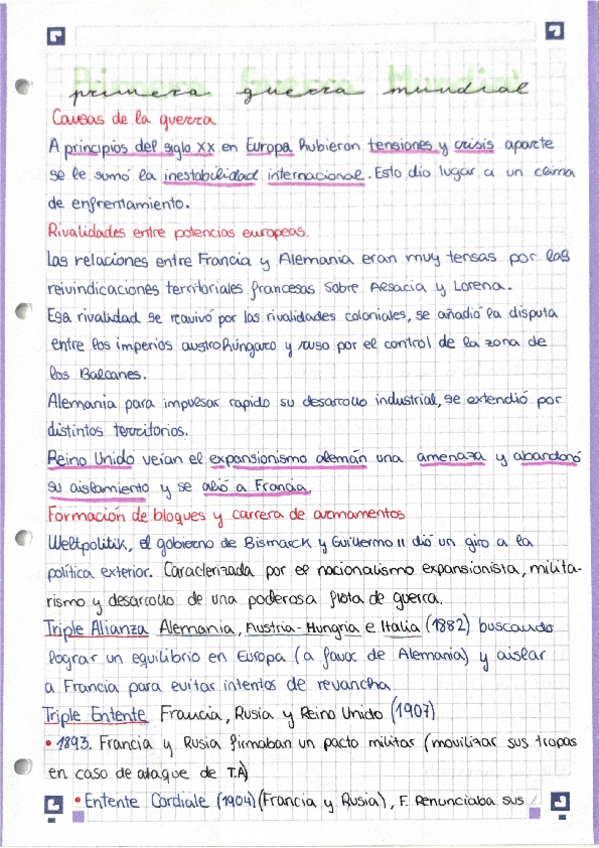 Primera Guerra Mundial
primera guerra mundial
Causas de la guerra
A principios del siglo XX en Europa hubieron tensiones y crisis aparte
se le sumó la inestabilidad internacional. Esto dio lugar a un clima
de enfrentamiento.
Rivalidades entre potencias europeas.
Las relaciones entre Francia y Alemania eran muy tensas por las
reivindicaciones territoriales francesas sobre Alsacia y Lorena.
Esa rivalidad se reavivó por las rivalidades coloniales, se añadió la disputa
entre los imperios austrohúngaro y ruso por el control de la zona de
los Balcanes.
Alemania para impulsar rapido su desarrollo industrial, se extendió por
distintos territorios.
Reino Unido veían el expansionismo alemán una amenaza y abandonó
su aislamiento y se alió a Francia.
Formación de bloques y carrera de armamentos
Weltpolitik, el gobierno de Bismarck y Guillermo II dió un giro a la
política exterior. Caracterizada por el nacionalismo expansionista, milita-
rismo y desarrollo de una poderosa flota de guerra.
Triple Alianza Alemania, Austria-Hungria e Italia (1882) buscando
lograr un equilibrio en Europa (a favor de Alemania) y aislar
a Francia para evitar intentos de revancha
Triple Entente Francia, Rusia y Reino Unido (1907)
• 1893. Francia y Rusia firmaban un pacto militar (movilizar sus tropas
en caso de ataque de T.A)
• Entente Cordiale (1904) (Francia y Rusia), F. Renunciaba sus